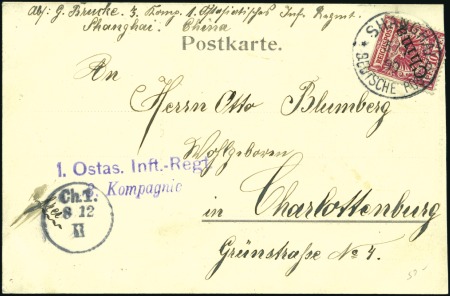 Abs: G. Brucke. 3. Komp. 1. Ostasiatisches Inf. Regmt.
Shanghai. China
Postkarte.
SHANGHAI
China
DEUTSCHE POST
An
Herrn Otto Blumberg
Wohlgeboren
1. Ostas. Inft.-Regt.
3. Kompagnie
in Charlottenburg
Ch.1.
8 12
II
Grünstraße No 4.